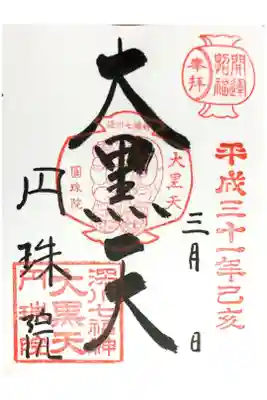 奉拝
開運
招福
平成三十一年己亥
三月 日
大黒天
深川七福神
大黒天
圓珠院
円珠院
深川七福神
大黒天